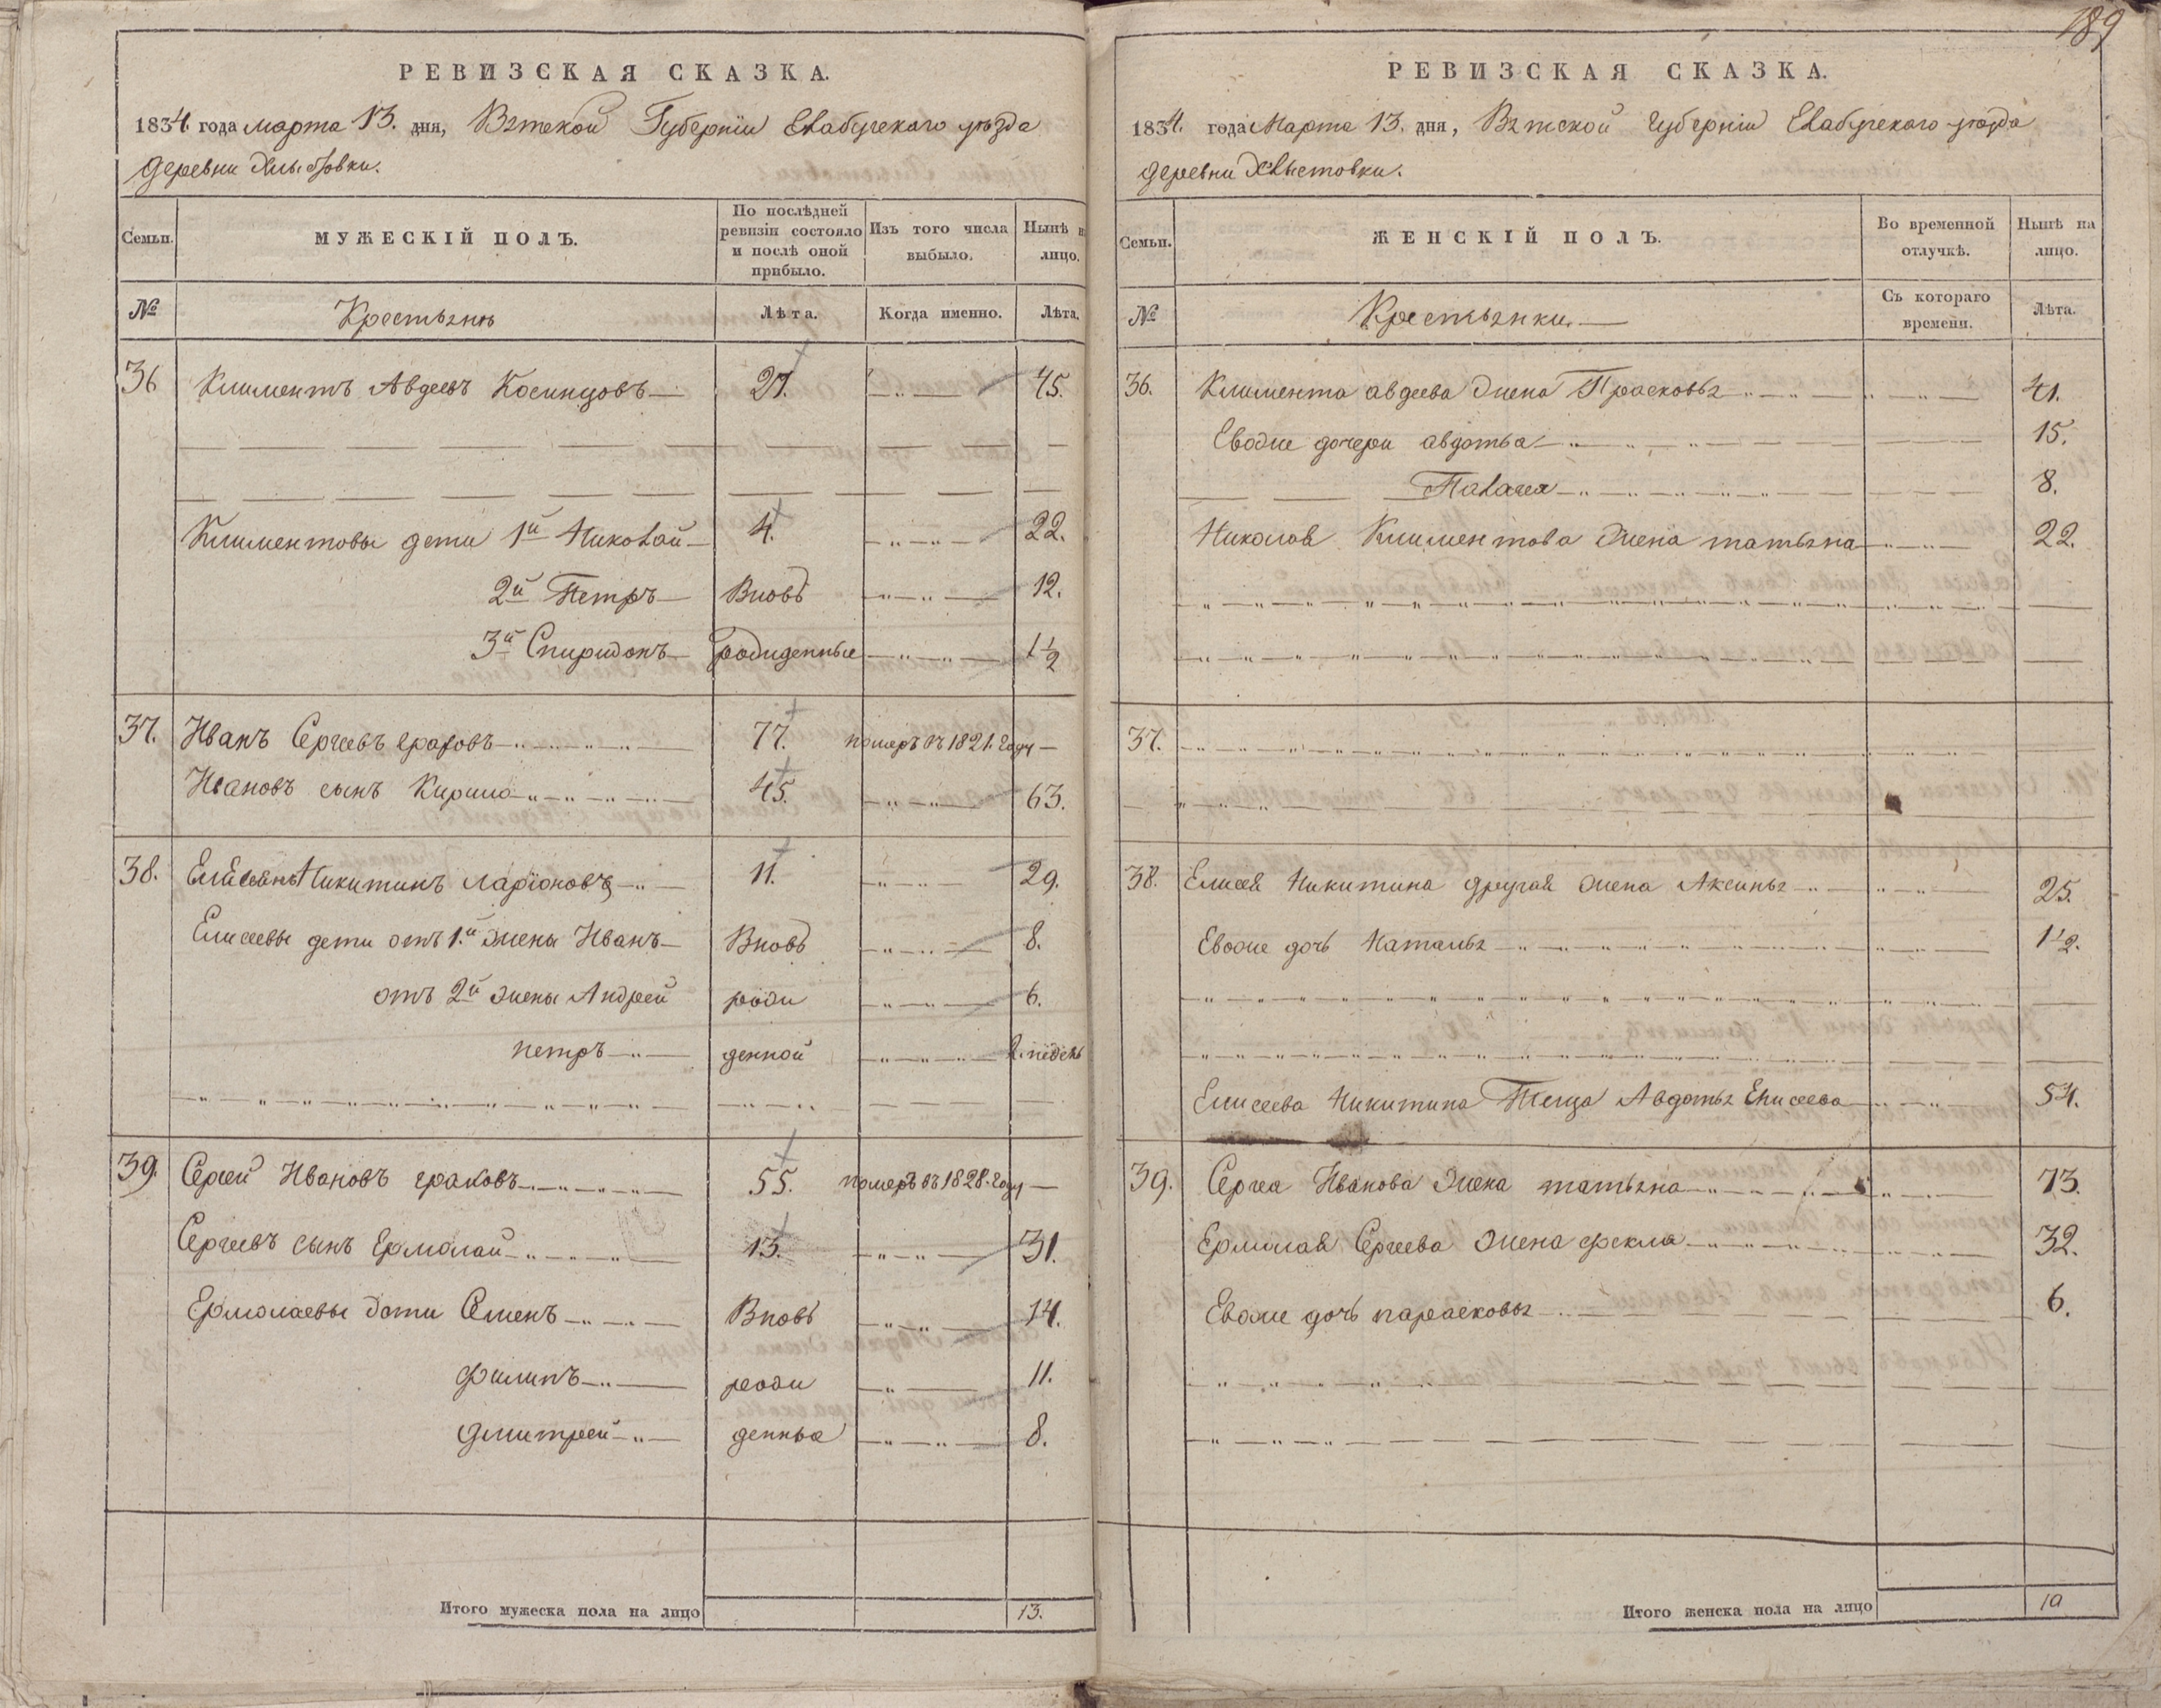 РЕВИЗСКАЯ СКАЗКА.
1834. года марта 13. дня, Вятской Губернiи Елабугскаго уѣзда
деревни Хлыстовки.
Семьи.
МУЖЕСКІЙ ПОЛЪ.
По послѣдней ревизіи состояло и послѣ оной прибыло.
Изъ того числа выбыло.
Нынѣ на лицо.
№
Крестьянѣ
Лѣта.
Когда именно.
Лѣта.
36 Климентъ Авдеевъ Косинцовъ 27. 45.
Климентовы дети 1й Николай 4. 22.
2й Петръ Вновь 12.
3й Спиридонъ рожденные 1½
37. Иванъ Сергеевъ 77. померъ въ 1821. Году
Ивановъ сынъ Кирило 45. 63.
38. Елисей Никитинъ Ларіоновъ 11. 29.
Елисеевы дети отъ 1.й жены Иванъ Вновь 8.
отъ 2й жены Андрей рож 6.
петръ денной 2. недель
39. Сергей Ивановъ граховъ 55. померъ въ 1828. Году
Сергеевъ сынъ Ермолай 13. 31.
Ермолаевы дети Семенъ Вновь 14.
Филипъ рож 11.
Дмитрей денныя 8.
Итого мужеска пола на лицо 13.
189
РЕВИЗСКАЯ СКАЗКА.
1834. года Марта 13. дня, Вятской Губернiи Елабугскаго уѣзда
деревни Хлыстовки.
Семьи.
ЖЕНСКІЙ ПОЛЪ.
Во временной отлучкѣ.
Нынѣ на лицо.
№
Крестьянки.
Съ котораго времени.
Лѣта.
36. Климента авдеева жена Прасковья 41.
Евоже дочери авдотья 15.
Палагея 8.
Николая Климентова жена татьяна 22.
37.
38. Елисея Никитина другая жена Аксинья 25.
Евоже дочь Наталья 1½.
Елисеева Никитина Теща Авдотья Елисеева 54.
39. Сергея Иванова жена татьяна 73.
Ермолая Сергеева жена фекла 32.
Евоже дочь парасковья 6.
Итого женска пола на лицо 10